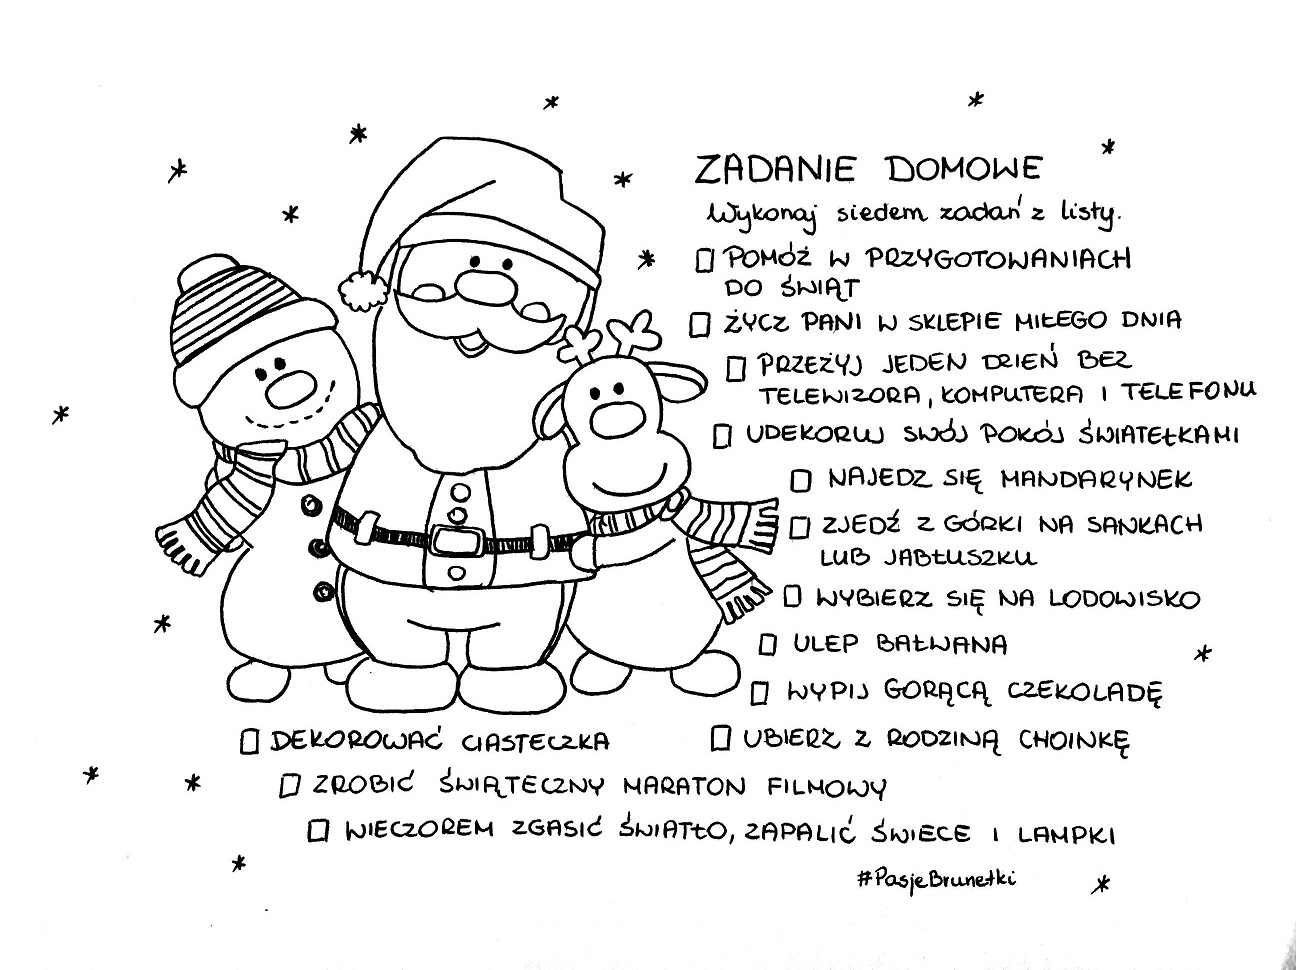 ZADANIE DOMOWE
Wykonaj siedem zadań z listy.
POMÓŻ W PRZYGOTOWANIACH
DO ŚWIĄT
ŻYCZ PANI W SKLEPIE MIŁEGO DNIA
PRZEŻYJ JEDEN DZIEŃ BEZ
TELEWIZORA, KOMPUTERA I TELEFONU
UDEKORUJ SWÓJ POKÓJ ŚWIATEŁKAMI
NAJEDZ SIĘ MANDARYNEK
ZJEDŹ Z GÓRKI NA SANKACH
LUB JABŁUSZKU
WYBIERZ SIĘ NA LODOWISKO
ULEP BAŁWANA
WYPIJ GORĄCĄ CZEKOLADĘ
UBIERZ Z RODZINĄ CHOINKĘ
DEKOROWAĆ CIASTECZKA
ZROBIĆ ŚWIĄTECZNY MARATON FILMOWY
WIECZOREM ZGASIĆ ŚWIATŁO, ZAPALIĆ ŚWIECE I LAMPKI
#PasjeBrunetki